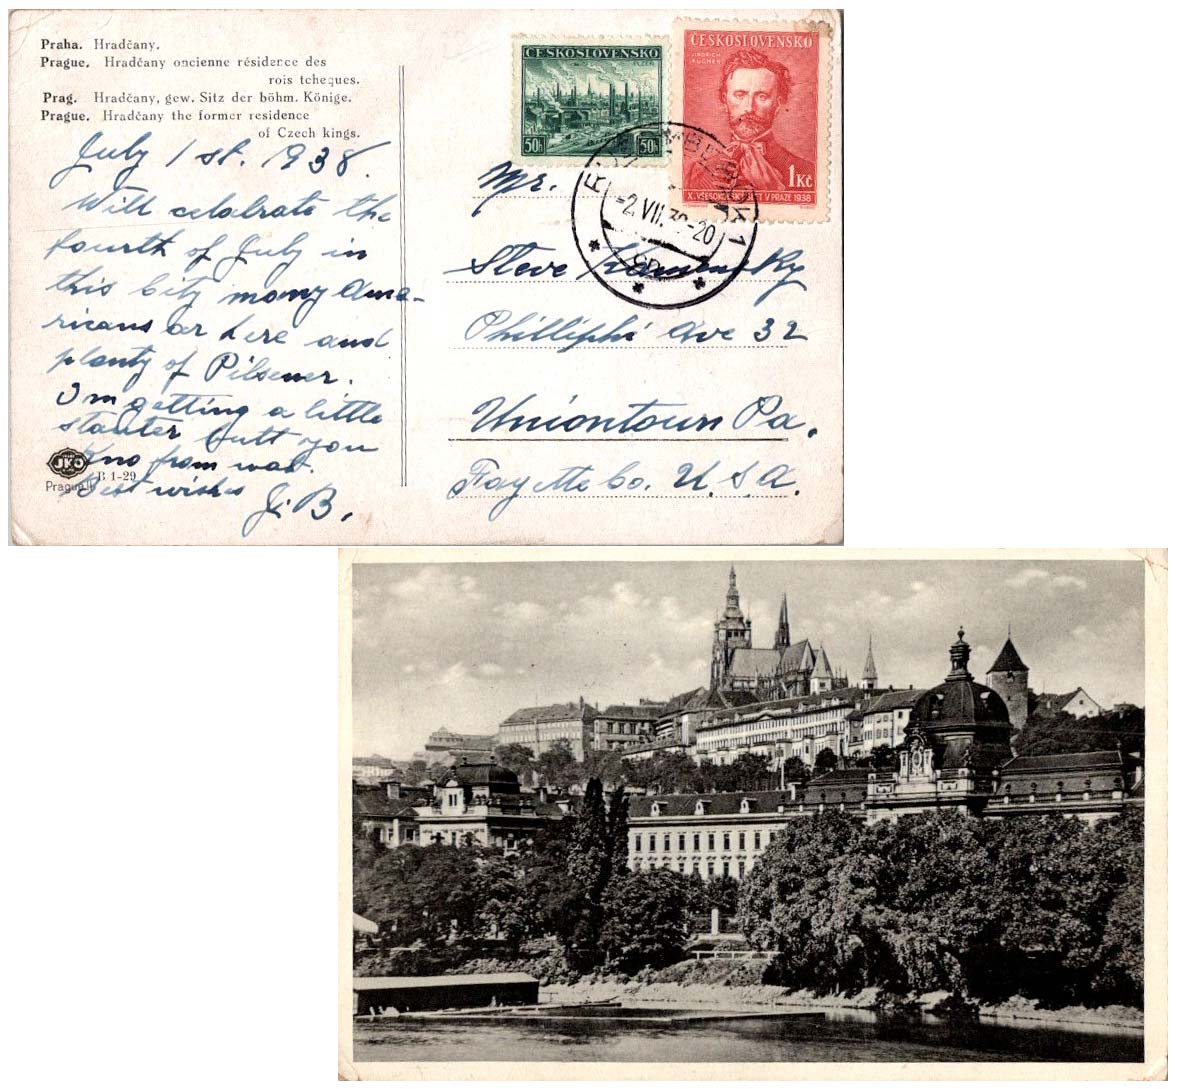 Praha. Hradčany.
Prague. Hradčany oncienne résidence des
rois tcheques.
Prag. Hradčany, gew. Sitz der böhm. Könige.
Prague. Hradčany the former residence
of Czech kings.
July 1 st. 1938.
Will celabrate the
fourth of July in
this City many Ame-
ricans ar here and
planty of Pilsener.
I'm getting a little
stauter butt you
kno from wat.
Best wishes
J. B.
JKO
B 1-29
Prague
ČESKOSLOVENSKO
PLZEŇ
50h 50h
ČESKOSLOVENSKO
JINDŘICH
FÜGNER
1Kčs
X. VŠESOKOLSKÝ SLET V PRAZE 1938
-2.VII.38-20
Mr.
Steve Kamensky
Philliphi Ave 32
Uniontown Pa.
Fayette Co. U.S.A.